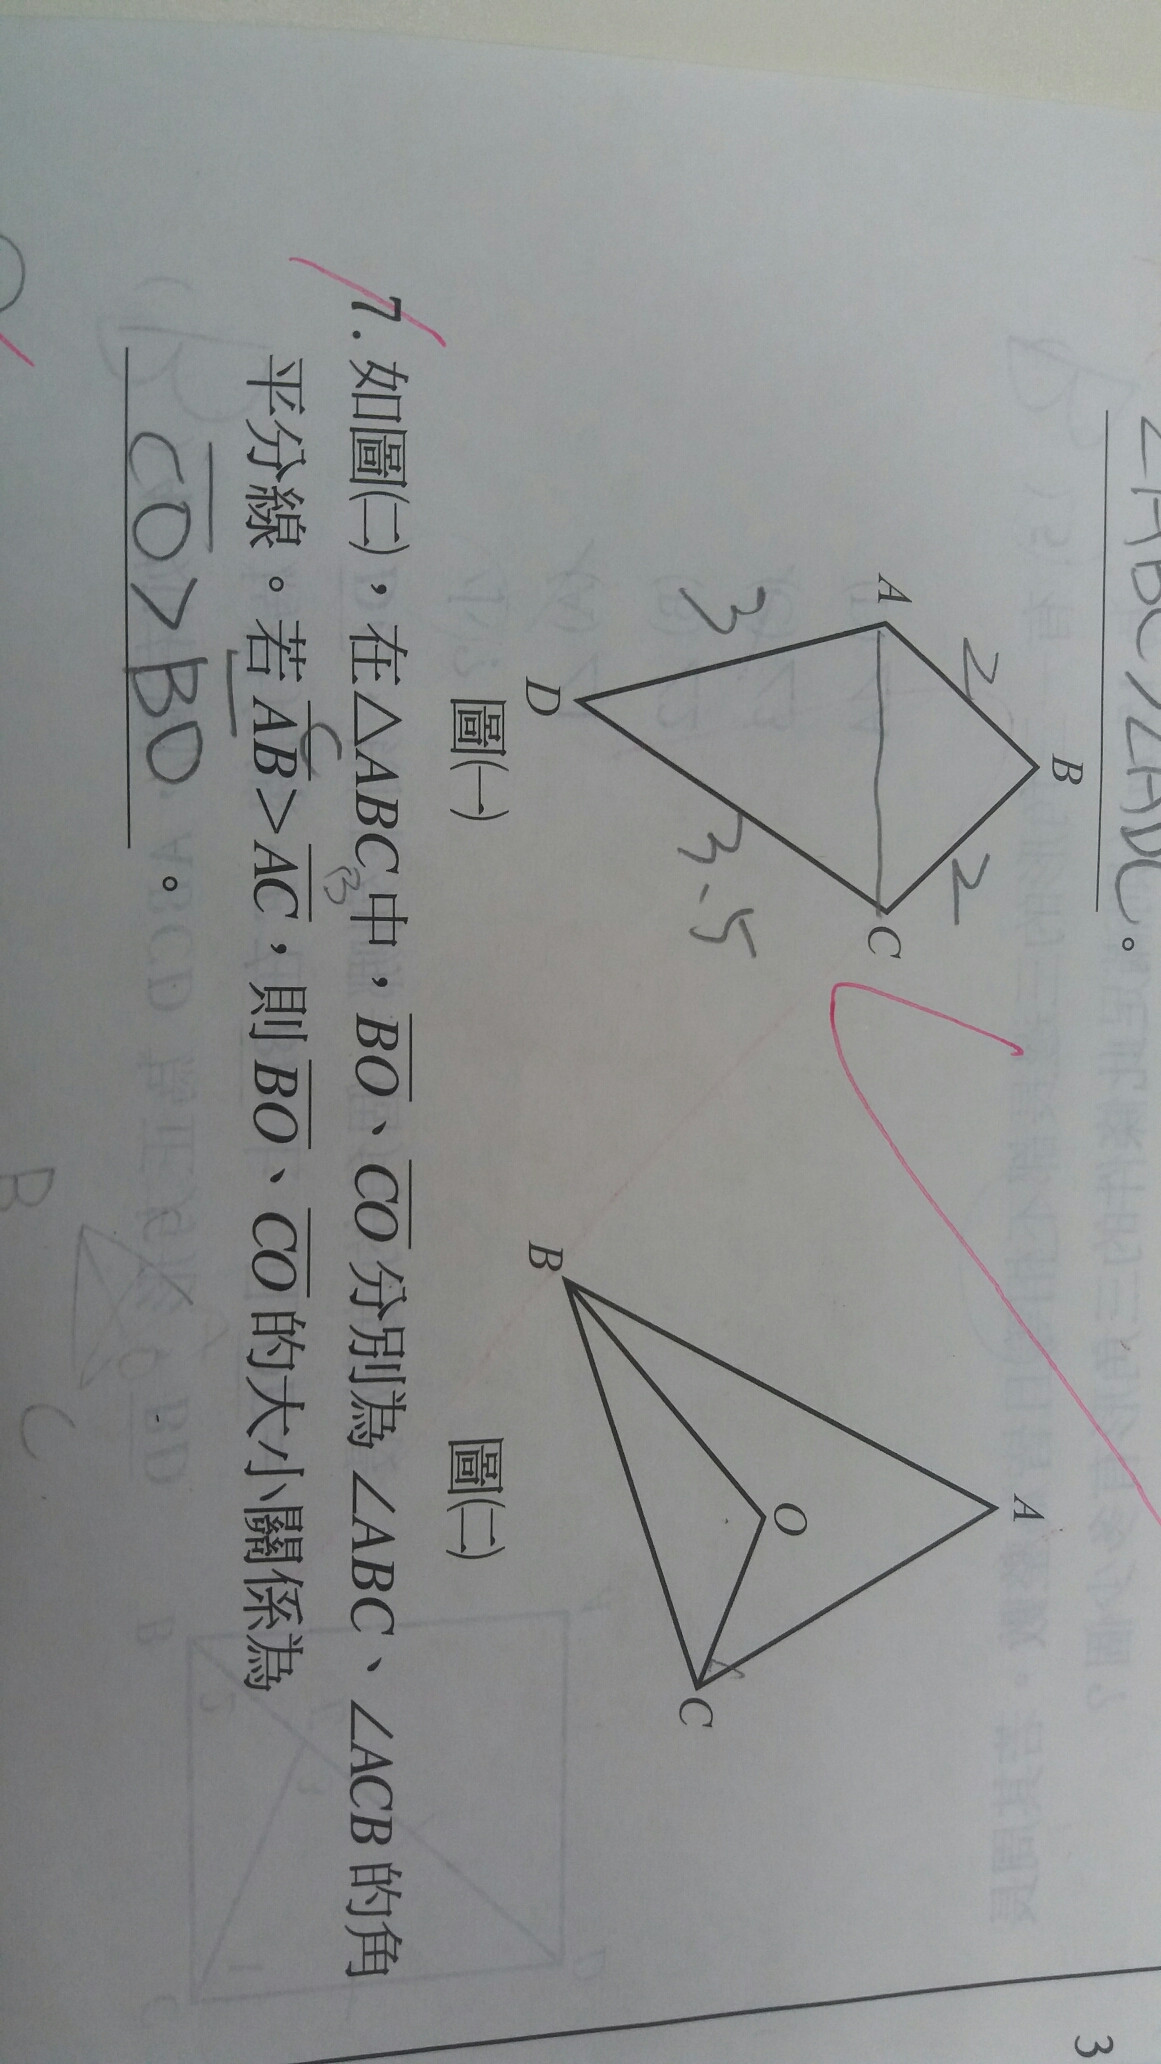 ∠ABC>∠ADC。
A
B
C
D
2
2
3
3.5
圖(一)
A
B
C
O
圖(二)
7. 如圖(二)，在△ABC中，BO、CO分別為∠ABC、∠ACB的角
C
B
平分線。若AB>AC，則BO、CO的大小關係為
CO>BO。
3